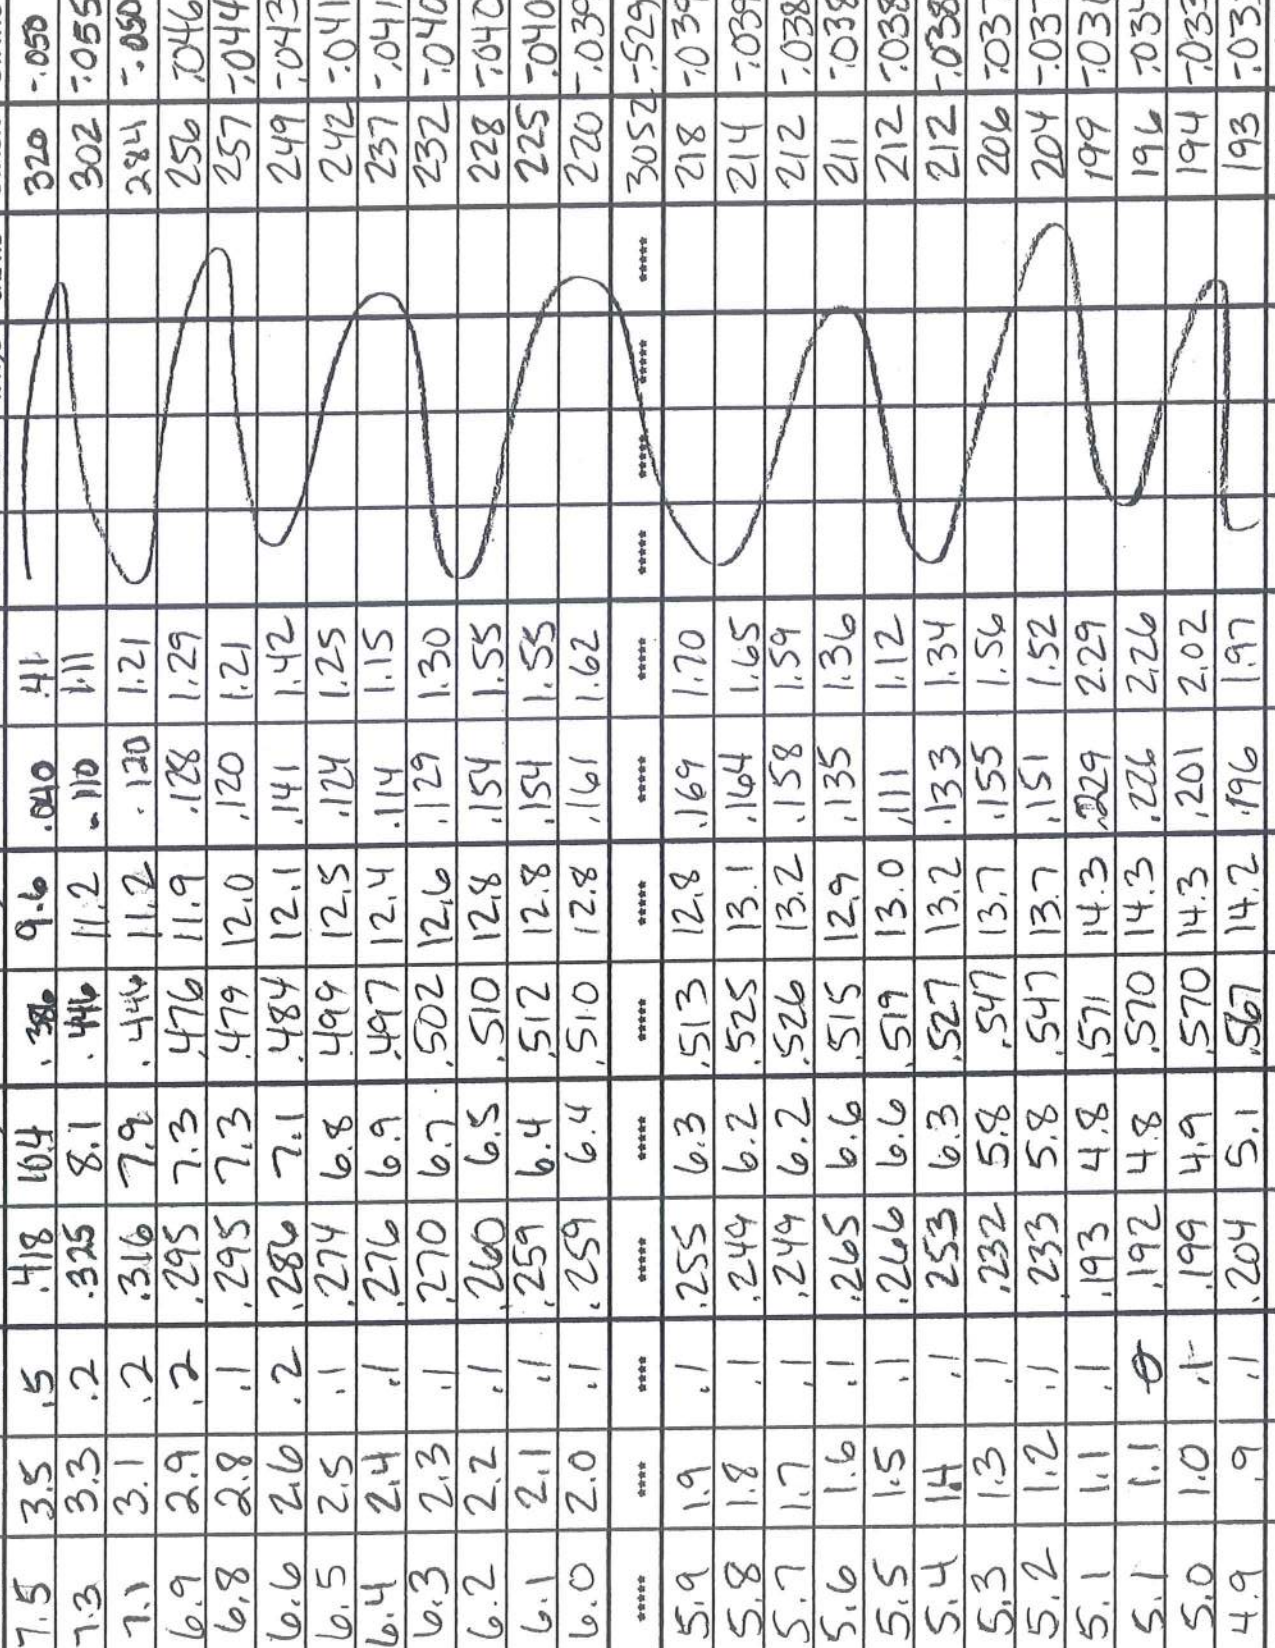 7.5 3.5 .5 .418 10.4 .386 9.6 .040 .41 320 -.050
7.3 3.3 .2 .325 8.1 .446 11.2 .110 1.11 302 -.055
7.1 3.1 .2 .316 7.9 .446 11.2 .120 1.21 284 -.050
6.9 2.9 .2 .295 7.3 .476 11.9 .128 1.29 256 .046
6.8 2.8 .1 .295 7.3 .479 12.0 .120 1.21 257 -.044
6.6 2.6 .2 .286 7.1 .484 12.1 .141 1.42 249 -.043
6.5 2.5 .1 .274 6.8 .499 12.5 .124 1.25 242 -.041
6.4 2.4 .1 .276 6.9 .497 12.4 .114 1.15 237 -.041
6.3 2.3 .1 .270 6.7 .502 12.6 .129 1.30 232 -.040
6.2 2.2 .1 .260 6.5 .510 12.8 .154 1.55 228 -.040
6.1 2.1 .1 .259 6.4 .512 12.8 .154 1.55 225 -.040
6.0 2.0 .1 .259 6.4 .510 12.8 .161 1.62 220 -.039
***** **** **** ***** ***** ***** ***** ***** ***** ***** 3052 -.529
5.9 1.9 .1 .255 6.3 .513 12.8 .169 1.70 218 -.039
5.8 1.8 .1 .249 6.2 .525 13.1 .164 1.65 214 -.039
5.7 1.7 .1 .249 6.2 .526 13.2 .158 1.59 212 -.038
5.6 1.6 .1 .265 6.6 .515 12.9 .135 1.36 211 -.038
5.5 1.5 .1 .266 6.6 .519 13.0 .111 1.12 212 -.038
5.4 1.4 .1 .253 6.3 .527 13.2 .133 1.34 212 -.038
5.3 1.3 .1 .232 5.8 .547 13.7 .155 1.56 206 -.037
5.2 1.2 .1 .233 5.8 .547 13.7 .151 1.52 204 -.037
5.1 1.1 .1 .193 4.8 .571 14.3 .229 2.29 199
5.1 1.1 0 .192 4.8 .570 14.3 .226 2.26 196 -.034
5.0 1.0 .1 .199 4.9 .570 14.3 .201 2.02 194 -.033
4.9 .9 .1 .204 5.1 .567 14.2 .196 1.97 193